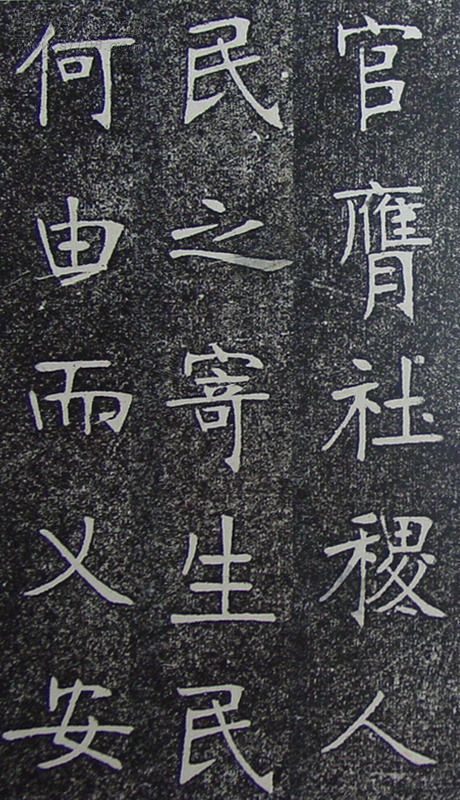 官膺社稷人
民之寄生民
何由而乂安